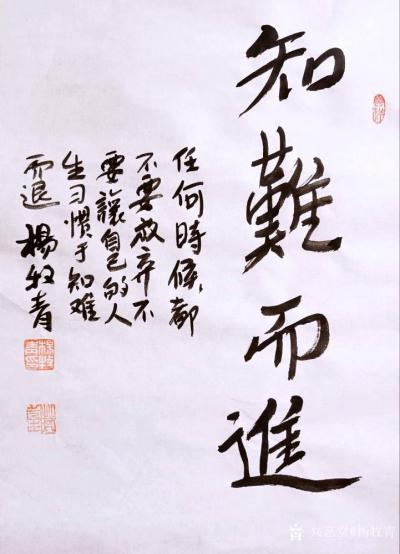 知難而進
任何時候,都
不要放弃不
要讓自己的人
生习惯于知难
而退 楊牧青
兴艺堂®杨牧青